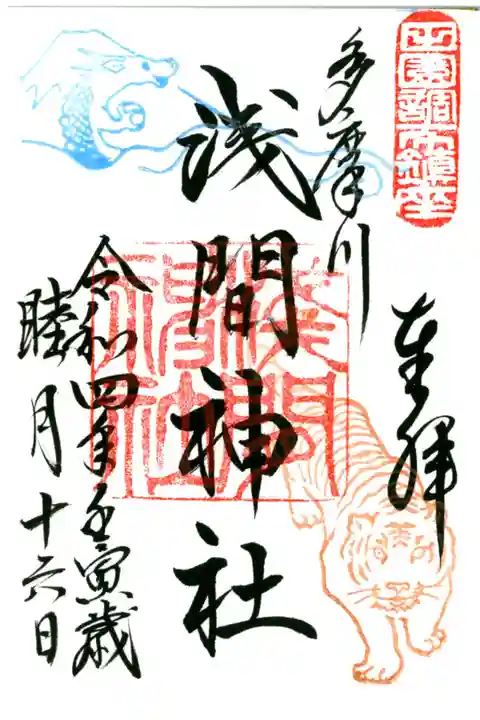 田園調布鎮座
奉拝
多摩川
浅間神社
浅間神社
令和四年壬寅歳
睦月十六日